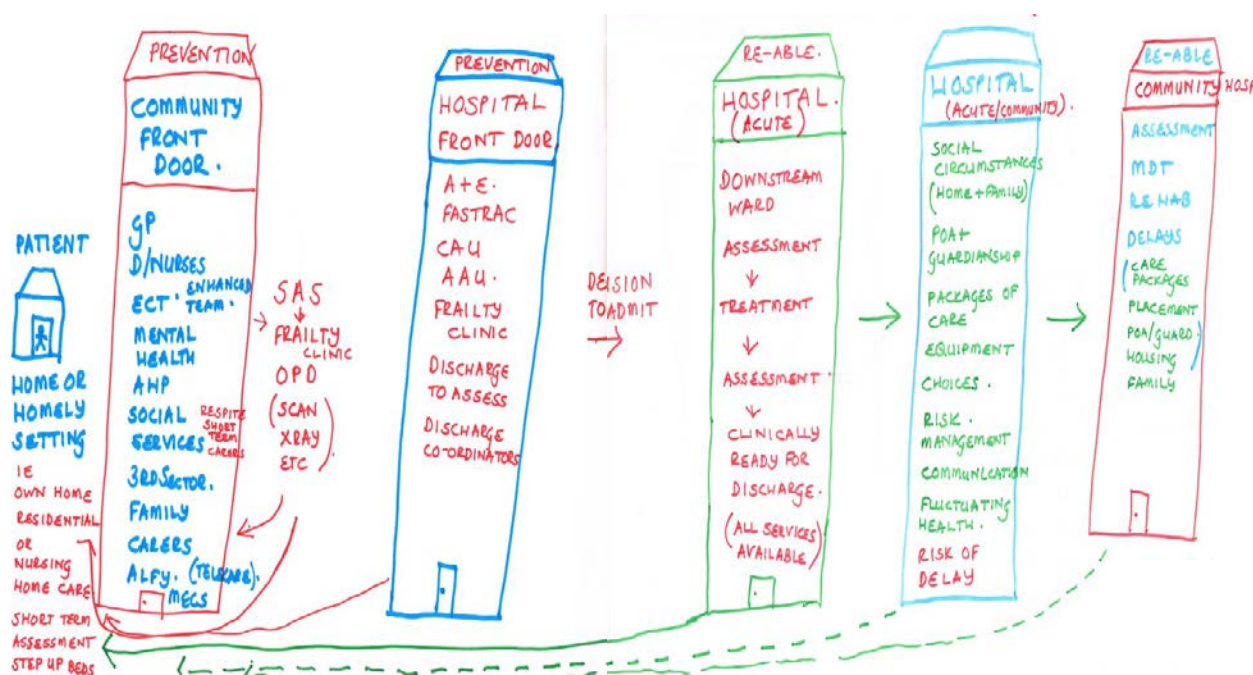 PATIENT
HOME OR
HOMELY
SETTING
IE
OWN HOME
RESIDENTIAL
OR
NURSING
HOME CARE
SHORT TERM
ASSESSMENT
STEP UP BEDS
PREVENTION
COMMUNITY
FRONT
DOOR.
GP
D/NURSES
ECT. ENHANCED
TEAM.
MENTAL
HEALTH
AHP
SOCIAL
SERVICES
RESPITE
SHORT
TERM
CARERS
3RD SECTOR.
FAMILY
CARERS
ALFY. (TELECARE).
MECS
SAS
FRAILTY
CLINIC
OPD
(SCAN
XRAY
ETC)
PREVENTION
HOSPITAL
FRONT DOOR
A+E.
FASTRAC
CAU
AAU.
FRAILTY
CLINIC
DISCHARGE
TO ASSESS
DISCHARGE
CO-ORDINATORS
DEISION
TOADMIT
RE-ABLE.
HOSPITAL.
(ACUTE)
DOWNSTREAM
WARD
ASSESSMENT
TREATMENT
ASSESSMENT.
CLINICALLY
READY FOR
DISCHARGE.
(ALL SERVICES
AVAILABLE)
HOSPITAL
(ACUTE/COMMUNITY).
SOCIAL
CIRCUMSTANCES
(HOME+FAMILY)
POA+
GUARDIANSHIP
PACKAGES OF
CARE
EQUIPMENT
CHOICES.
RISK.
MANAGEMENT
COMMUNICATION
FLUCTUATING
HEALTH.
RISK OF
DELAY
RE-ABLE
COMMUNITY HOSP
ASSESSMENT
MDT
REHAB
DELAYS
(CARE
PACKAGES
PLACEMENT
POA/GUARD.
HOUSING)
FAMILY